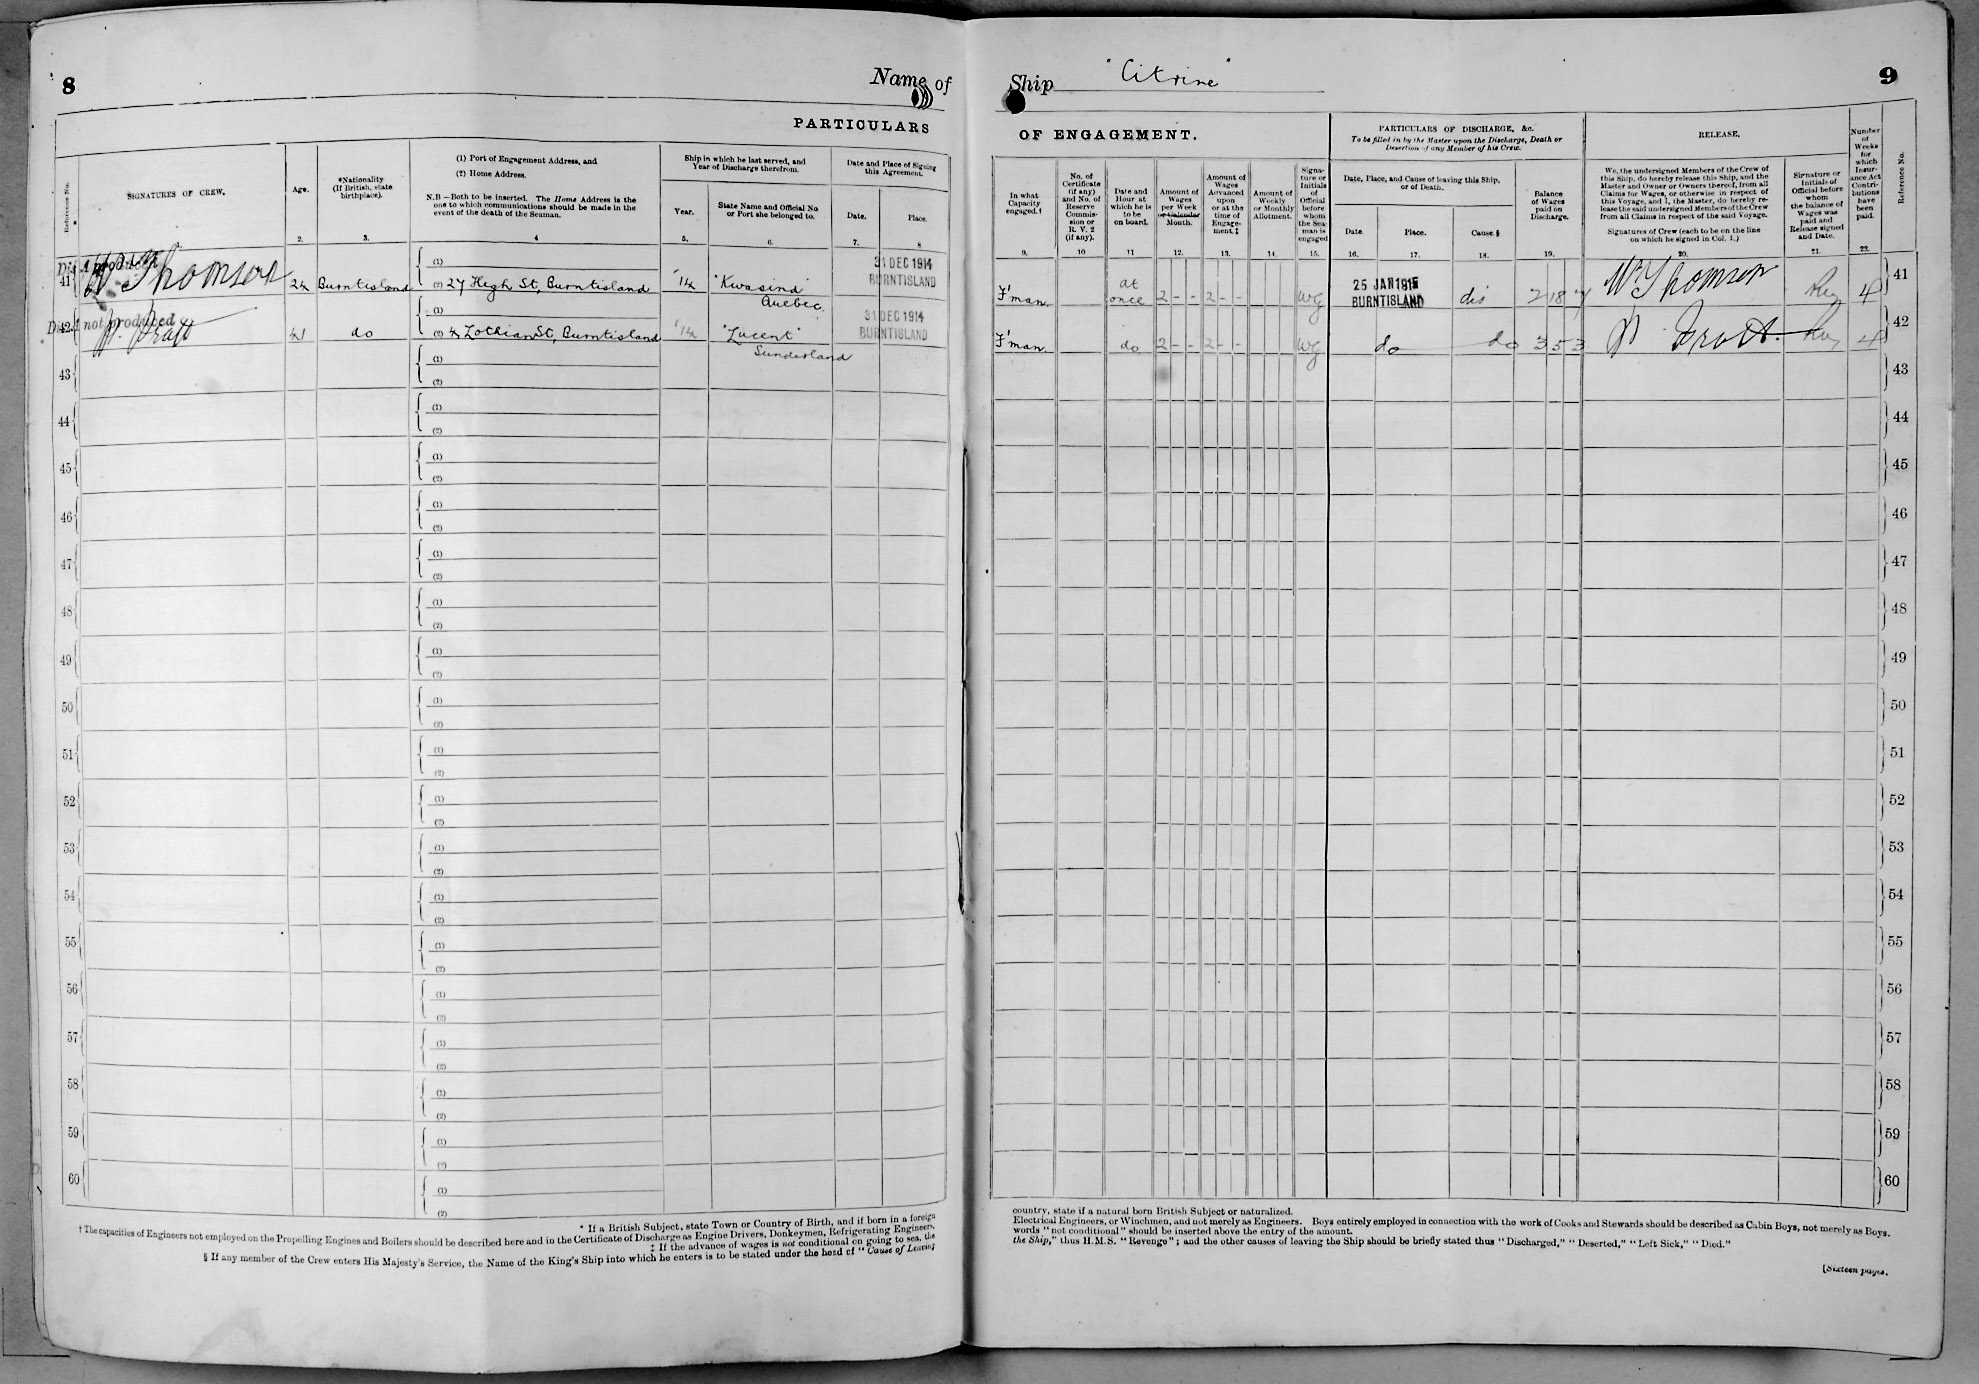 8
Name of
PARTICULARS
Reference No.
SIGNATURES OF CREW.
Age.
*Nationality
(If British, state
birthplace).
(1) Port of Engagement Address, and
(2) Home Address.
N.B—Both to be inserted. The Home Address is the
one to which communications should be made in the
event of the death of the Seaman.
Ship in which he last served, and
Year of Discharge therefrom.
Year.
State Name and Official No
or Port she belonged to.
Date and Place of Signing
this Agreement.
Date.
Place.
2. 3. 4 5. 6. 7. 8
Dis A produced
41 W Thomson 24 Burntisland (1)
(2) 27 High St, Burntisland '14 "Kwasind
Quebec
31 DEC 1914
BURNTISLAND
Dis A not produced
42 41 do (1)
(2) 4 Lothian St, Burntisland '14 "Lucent"
Sunderland
31 DEC 1914
BURNTISLAND
43 (1)
(2)
44 (1)
(2)
45 (1)
(2)
46 (1)
(2)
47 (1)
(2)
48 (1)
(2)
49 (1)
(2)
50 (1)
(2)
51 (1)
(2)
52 (1)
(2)
53 (1)
(2)
54 (1)
(2)
55 (1)
(2)
56 (1)
(2)
57 (1)
(2)
58 (1)
(2)
59 (1)
(2)
60 (1)
(2)
* If a British Subject, state Town or Country of Birth, and if born in a foreign
† The capacities of Engineers not employed on the Propelling Engines and Boilers should be described here and in the Certificate of Discharge as Engine Drivers, Donkeymen, Refrigerating Engineers,
‡ If the advance of wages is not conditional on going to sea, the
§ If any member of the Crew enters His Majesty's Service, the Name of the King's Ship into which he enters is to be stated under the head of "Cause of Leaving
Ship "Citrine"
9
OF ENGAGEMENT.
PARTICULARS OF DISCHARGE, &c.
To be filled in by the Master upon the Discharge, Death or
Desertion of any Member of his Crew.
RELEASE.
Number
of
Weeks
for
which
Insur-
ance Act
Contri-
butions
have
been
paid.
Reference No.
In what
Capacity
engaged.†
No. of
Certificate
(if any)
and No. of
Reserve
Commis-
sion or
R. V. 2
(if any).
Date and
Hour at
which he is
to be
on board.
Amount of
Wages
per Week
or Calendar
Month.
Amount of
Wages
Advanced
upon
or at the
time of
Engage-
ment.‡
Amount of
Weekly
or Monthly
Allotment.
Signa-
ture or
Initials
of
Official
before
whom
the Sea-
man is
engaged
Date, Place, and Cause of leaving this Ship,
or of Death.
Date.
Place.
Cause.§
Balance
of Wages
paid on
Discharge.
We, the undersigned Members of the Crew of
this Ship, do hereby release this Ship, and the
Master and Owner or Owners thereof, from all
Claims for Wages, or otherwise in respect of
this Voyage, and I, the Master, do hereby re-
lease the said undersigned Members of the Crew
from all Claims in respect of the said Voyage.
Signatures of Crew (each to be on the line
on which he signed in Col. 1.)
Signature or
Initials of
Official before
whom
the balance of
Wages was
paid and
Release signed
and Date.
9. 10 11 12. 13. 14. 15. 16. 17. 18. 19. 20. 21. 22.
F'man at
once 2 - - 2 - - WG 25 JAN 1915
BURNTISLAND dis 2 18 7 Wm Thomson 4 41
F'man. do 2 - - 2 - - WG do do 3 5 3 4 42
43
44
45
46
47
48
49
50
51
52
53
54
55
56
57
58
59
60
country, state if a natural born British Subject or naturalized.
Electrical Engineers, or Winchmen, and not merely as Engineers. Boys entirely employed in connection with the work of Cooks and Stewards should be described as Cabin Boys, not merely as Boys.
words "not conditional" should be inserted above the entry of the amount.
the Ship," thus H.M.S. "Revenge"; and the other causes of leaving the Ship should be briefly stated thus "Discharged," "Deserted," "Left Sick," "Died."
[Sixteen pages.